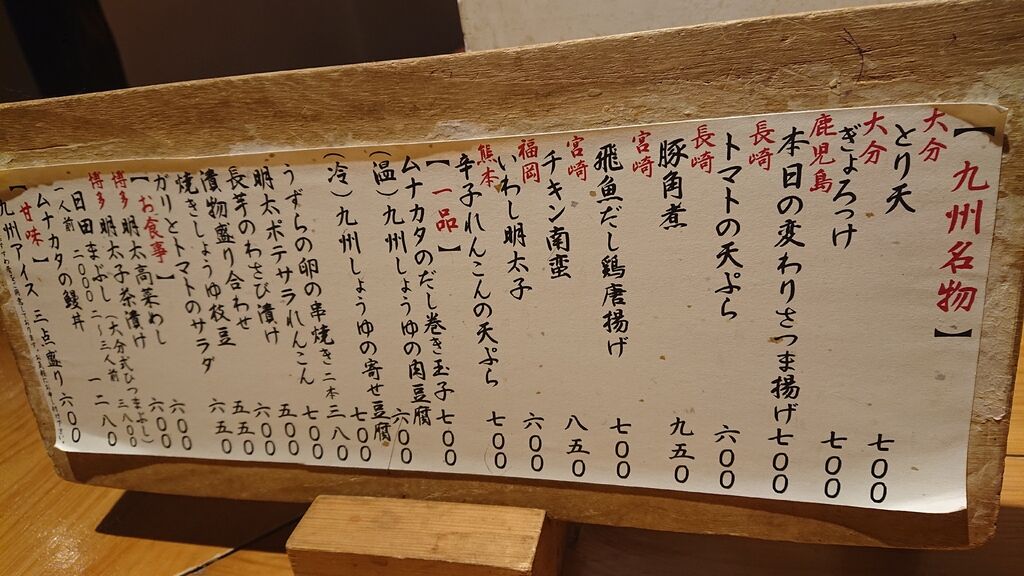 【九州名物】
大分 とり天 七〇〇
大分 ぎょろっけ 七〇〇
鹿児島 本日の変わりさつま揚げ 七〇〇
長崎 トマトの天ぷら 六〇〇
長崎 豚角煮 九五〇
宮崎 飛魚だし鶏唐揚げ 七〇〇
宮崎 チキン南蛮 八五〇
福岡 いわし明太子 六〇〇
熊本 辛子れんこんの天ぷら 七〇〇
【一品】
ムナカタのだし巻き玉子 七〇〇
(温)九州しょうゆの肉豆腐 六〇〇
(冷)九州しょうゆの寄せ豆腐 七〇〇
うずらの卵の串焼き 二本 三八〇
明太ポテサラれんこん 七〇〇
長芋のわさび漬け 五〇〇
漬物盛り合わせ 六〇〇
焼きしょうゆ枝豆 五五〇
ガリとトマトのサラダ 六五〇
【お食事】
博多 明太高菜めし 六〇〇
博多 明太子茶漬け 六〇〇
日田まぶし (大分式ひつまぶし)
一人前 二〇〇〇 二〜三人前 三八〇〇
ムナカタの鰻丼 一二八〇
【甘味】
九州アイス 三点盛り 六〇〇